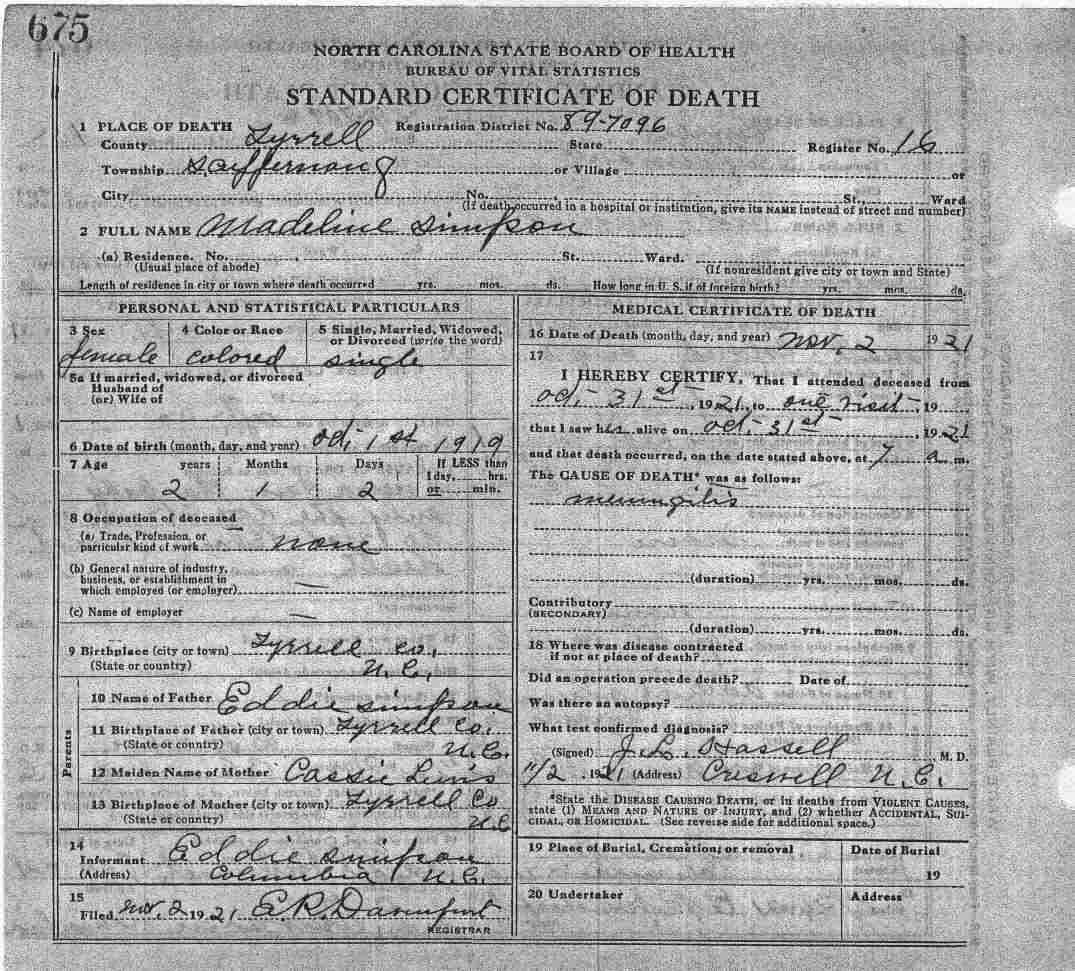 675
NORTH CAROLINA STATE BOARD OF HEALTH
BUREAU OF VITAL STATISTICS
STANDARD CERTIFICATE OF DEATH
1 PLACE OF DEATH Registration District No. 89-7096
County Tyrrell State Register No. 16
Township Scuppernong or Village or
City No. St., Ward
(If death occurred in a hospital or institution, give its NAME instead of street and number)
2 FULL NAME Madeline Simpson
(a) Residence. No. St. Ward.
(Usual place of abode) (If nonresident give city or town and State)
Length of residence in city or town where death occurred yrs. mos. ds. How long in U. S. if of foreign birth? yrs. mos. ds.
PERSONAL AND STATISTICAL PARTICULARS
3 Sex 4 Color or Race 5 Single, Married, Widowed,
or Divorced (write the word)
female colored single
5a If married, widowed, or divorced
Husband of
(or) Wife of
6 Date of birth (month, day, and year) Oct, 1st 1919
7 Age years Months Days If LESS than
1 day, hrs.
2 1 2 or min.
8 Occupation of deceased
(a) Trade, Profession, or
particular kind of work none
(b) General nature of industry,
business, or establishment in
which employed (or employer) —
(c) Name of employer —
9 Birthplace (city or town) Tyrrell Co,
(State or country) N.C.
Parents
10 Name of Father Eddie Simpson
11 Birthplace of Father (city or town) Tyrrell Co.
(State or country) N.C.
12 Maiden Name of Mother Cassie Lewis
13 Birthplace of Mother (city or town) Tyrrell Co
(State or country) N.C
14
Informant Eddie Simpson
(Address) Columbia N.C.
15
Filed Nov, 2 1921 E.R. Davenport
REGISTRAR
MEDICAL CERTIFICATE OF DEATH
16 Date of Death (month, day, and year) Nov, 2 1921
17
I HEREBY CERTIFY, That I attended deceased from
Oct, 31st, 1921, to one visit, 19
that I saw her alive on Oct, 31st, 1921
and that death occurred, on the date stated above, at 7 a m.
The CAUSE OF DEATH* was as follows:
meningitis
(duration) yrs. mos. ds.
Contributory
(SECONDARY)
(duration) yrs. mos. ds.
18 Where was disease contracted
if not at place of death?
Did an operation precede death? Date of
Was there an autopsy?
What test confirmed diagnosis?
(Signed) J. L. Hassell M. D.
11/2 . 1921 (Address) Creswell N.C.
*State the DISEASE CAUSING DEATH, or in deaths from VIOLENT CAUSES,
state (1) MEANS AND NATURE OF INJURY, and (2) whether ACCIDENTAL, SUI-
CIDAL, OR HOMICIDAL. (See reverse side for additional space.)
19 Place of Burial, Cremation, or removal Date of Burial
19
20 Undertaker Address